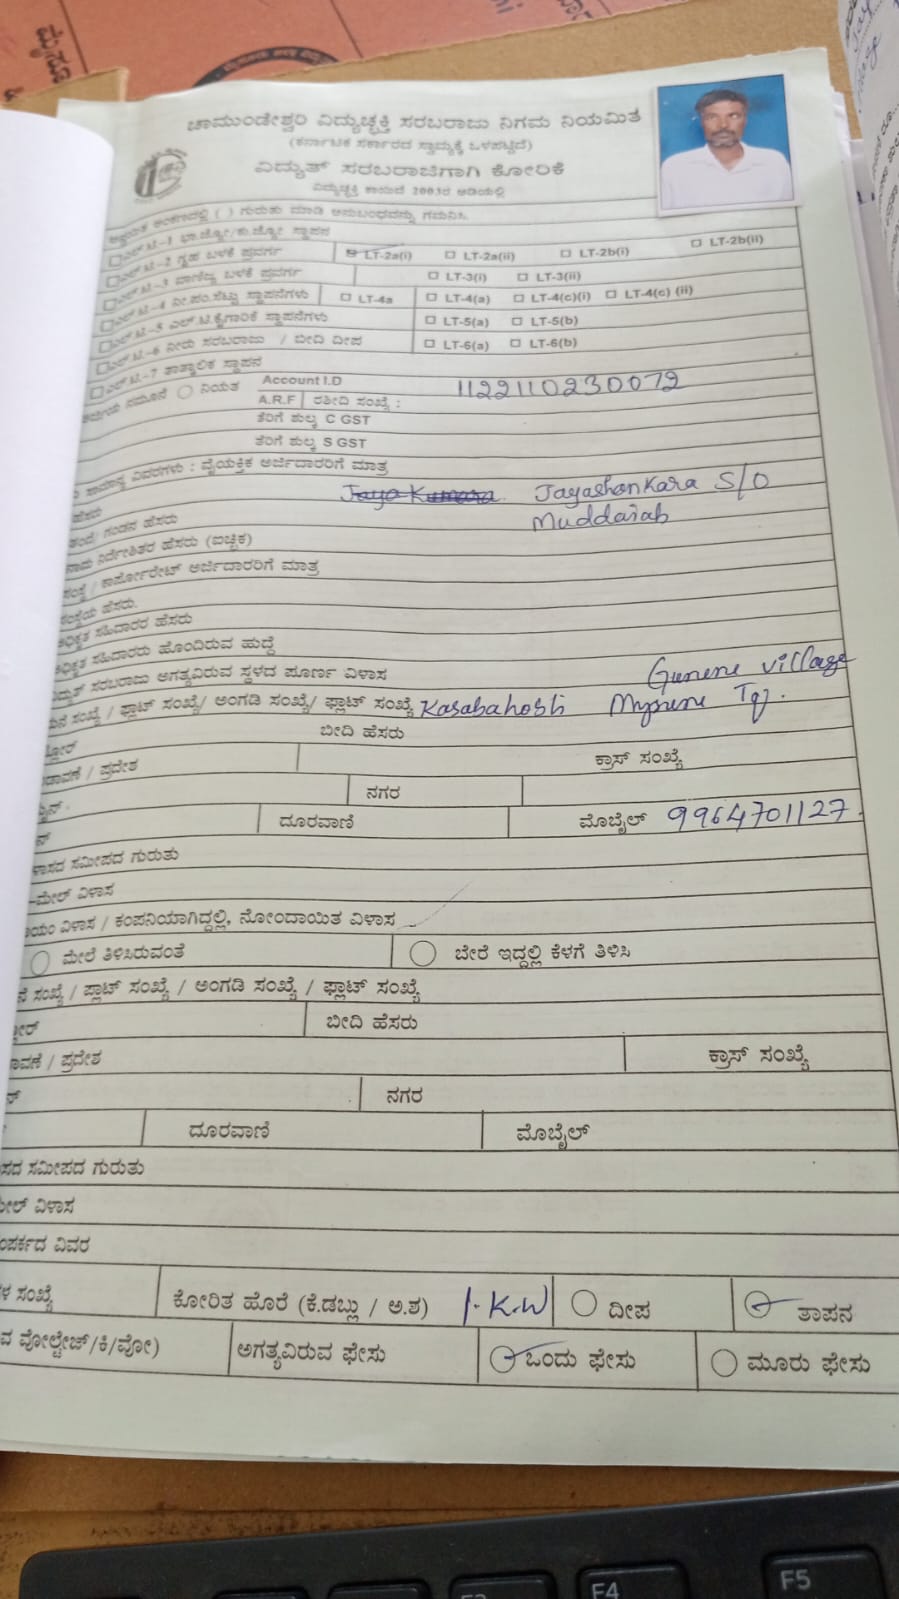 ಚಾಮುಂಡೇಶ್ವರಿ ವಿದ್ಯುಚ್ಛಕ್ತಿ ಸರಬರಾಜು ನಿಗಮ ನಿಯಮಿತ
(ಕರ್ನಾಟಕ ಸರ್ಕಾರದ ಸ್ವಾಮ್ಯಕ್ಕೆ ಒಳಪಟ್ಟಿದೆ)
ವಿದ್ಯುತ್ ಸರಬರಾಜಿಗಾಗಿ ಕೋರಿಕೆ
ವಿದ್ಯುಚ್ಛಕ್ತಿ ಕಾಯಿದೆ 2003ರ ಅಡಿಯಲ್ಲಿ
( ) ಗುರುತು ಮಾಡಿ ಅನುಬಂಧವನ್ನು ಗಮನಿಸಿ.
ಎಲ್.ಟಿ.-1 ಭಾ.ಜ್ಯೋ/ಕು.ಜ್ಯೋ ಸ್ಥಾಪನ
ಎಲ್.ಟಿ.-2 ಗೃಹ ಬಳಕೆ ಪ್ರವರ್ಗ LT-2a(i) LT-2a(ii) LT-2b(i) LT-2b(ii)
ಎಲ್.ಟಿ.-3 ವಾಣಿಜ್ಯ ಬಳಕೆ ಪ್ರವರ್ಗ LT-3(i) LT-3(ii)
ಎಲ್.ಟಿ.-4 ನೀ.ಪಂ.ಸೆಟ್ಟು ಸ್ಥಾಪನೆಗಳು LT-4a LT-4(a) LT-4(c)(i) LT-4(c) (ii)
ಎಲ್.ಟಿ.-5 ಎಲ್.ಟಿ.ಕೈಗಾರಿಕೆ ಸ್ಥಾಪನೆಗಳು LT-5(a) LT-5(b)
ಎಲ್.ಟಿ.-6 ನೀರು ಸರಬರಾಜು / ಬೀದಿ ದೀಪ LT-6(a) LT-6(b)
ಎಲ್.ಟಿ.-7 ತಾತ್ಕಾಲಿಕ ಸ್ಥಾಪನ
ಅರ್ಜಿಯ ನಮೂನೆ ನಿಯತ Account I.D 1122110230072
A.R.F ರಶೀದಿ ಸಂಖ್ಯೆ :
ತೆರಿಗೆ ಶುಲ್ಕ C GST
ತೆರಿಗೆ ಶುಲ್ಕ S GST
ಸಾಮಾನ್ಯ ವಿವರಗಳು : ವೈಯಕ್ತಿಕ ಅರ್ಜಿದಾರರಿಗೆ ಮಾತ್ರ
ಹೆಸರು Jaya Kumara Jayashankara S/O
ತಂದೆ/ ಗಂಡನ ಹೆಸರು Muddaiah
ನಾಮ ನಿರ್ದೇಶಿತರ ಹೆಸರು (ಐಚ್ಛಿಕ)
ಸಂಸ್ಥೆ / ಕಾರ್ಪೋರೇಟ್ ಅರ್ಜಿದಾರರಿಗೆ ಮಾತ್ರ
ಸಂಸ್ಥೆಯ ಹೆಸರು.
ಅಧಿಕೃತ ಸಹಿದಾರರ ಹೆಸರು
ಅಧಿಕೃತ ಸಹಿದಾರರು ಹೊಂದಿರುವ ಹುದ್ದೆ
ವಿದ್ಯುತ್ ಸರಬರಾಜು ಅಗತ್ಯವಿರುವ ಸ್ಥಳದ ಪೂರ್ಣ ವಿಳಾಸ village
ಮನೆ ಸಂಖ್ಯೆ / ಪ್ಲಾಟ್ ಸಂಖ್ಯೆ/ ಅಂಗಡಿ ಸಂಖ್ಯೆ/ ಫ್ಲಾಟ್ ಸಂಖ್ಯೆ Kasabahobli
ಬೀದಿ ಹೆಸರು
ಬಡಾವಣೆ / ಪ್ರದೇಶ ಕ್ರಾಸ್ ಸಂಖ್ಯೆ
ನಗರ
ದೂರವಾಣಿ ಮೊಬೈಲ್ 9964701127.
ವಿಳಾಸದ ಸಮೀಪದ ಗುರುತು
-ಮೇಲ್ ವಿಳಾಸ
ಖಾಯಂ ವಿಳಾಸ / ಕಂಪನಿಯಾಗಿದ್ದಲ್ಲಿ, ನೋಂದಾಯಿತ ವಿಳಾಸ
ಮೇಲೆ ತಿಳಿಸಿರುವಂತೆ ಬೇರೆ ಇದ್ದಲ್ಲಿ ಕೆಳಗೆ ತಿಳಿಸಿ
ಸಂಖ್ಯೆ / ಪ್ಲಾಟ್ ಸಂಖ್ಯೆ / ಅಂಗಡಿ ಸಂಖ್ಯೆ / ಫ್ಲಾಟ್ ಸಂಖ್ಯೆ
ಬೀದಿ ಹೆಸರು
/ ಪ್ರದೇಶ ಕ್ರಾಸ್ ಸಂಖ್ಯೆ
ನಗರ
ದೂರವಾಣಿ ಮೊಬೈಲ್
ಸಮೀಪದ ಗುರುತು
ವಿಳಾಸ
ವಿವರ
ಸಂಖ್ಯೆ ಕೋರಿತ ಹೊರೆ (ಕೆ.ಡಬ್ಲು / ಅ.ಶ) 1.K.W ದೀಪ ತಾಪನ
ವೋಲ್ಟೇಜ್/ಕಿ/ವೋ) ಅಗತ್ಯವಿರುವ ಫೇಸು ಒಂದು ಫೇಸು ಮೂರು ಫೇಸು
F4
F5